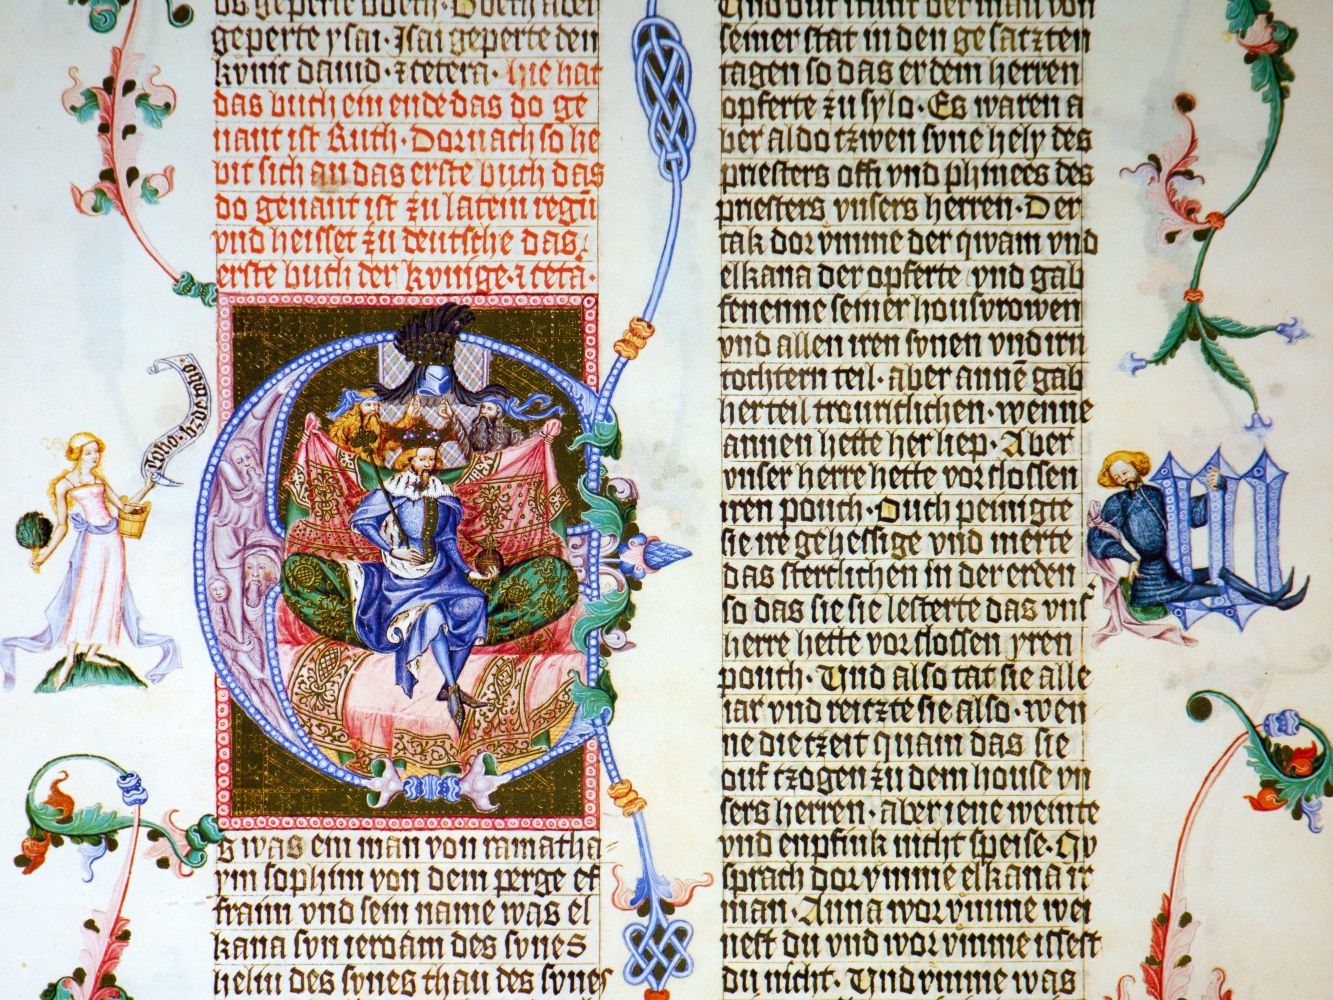 geperte ysai · Isai geperte den
kvnic dauid · ⁊ cetera · hie hat
das buch ein ende das do ge
nant ist Ruth · Dornach so he
bit sich an das erste buch das
do genant ist zu latein regū
vnd heisset zu deutsche das
erste buch der kvnige · ⁊ cetā ·
E
s was ein man von ramatha
ym sophim von dem perge ef
fraim vnd sein name was el
kana svn ieroam des svnes
heliu des svnes thau des svnes
Vnd der man von
seiner stat in den gesatzten
tagen so das er dem herren
opferte zu sylo · Es waren a
ber aldo tzwen svne hely des
priesters offi vnd phinees des
priesters vnsers herren · Der
tak dor vmme der qwam vnd
elkana der opferte vnd gab
fenenne seiner housvrowen
vnd allen iren svnen vnd irn
tochtern teil · aber annē gab
her teil trouriclichen · wenne
annen hette her liep · Aber
vnser herre hette vorslossen
iren pouch · Ouch peinigte
sie ire gehessige vnd merte
das stertlichen in der erden
so das sie sie lesterte das vns
herre hette vorslossen yren
pouch · Vnd also tat sie alle
iar vnd reitzte sie also · wen
ne die tzeit quam das sie
ouf tzogen zu dem house vn
sers herren · aber iene weinte
vnd enpfink nicht speise · Do
sprach dor vmme elkana ir
man · Anna wor vmme wei
nest du vnd wor vmme issest
du nicht · Vnd vmme was